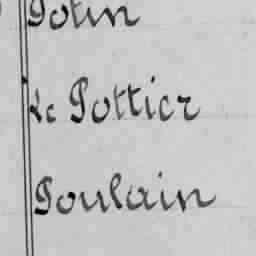 Potin
Le Pottier
Poulain